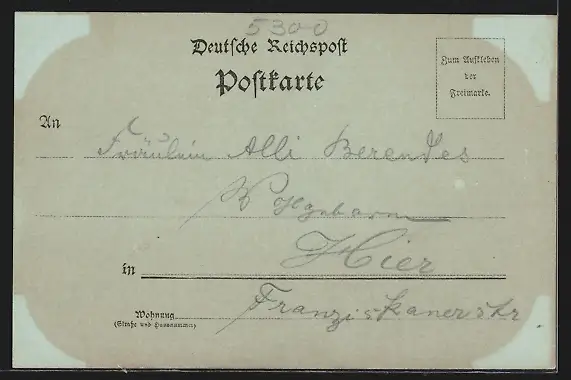 5300
Deutsche Reichspost
Postkarte
Zum Aufkleben
der
Freimarke.
An
Fräulein Alli Berendes
Wohlgeborn
in Hier
Wohnung
(Straße und Hausnummer)
Franziskanerstr